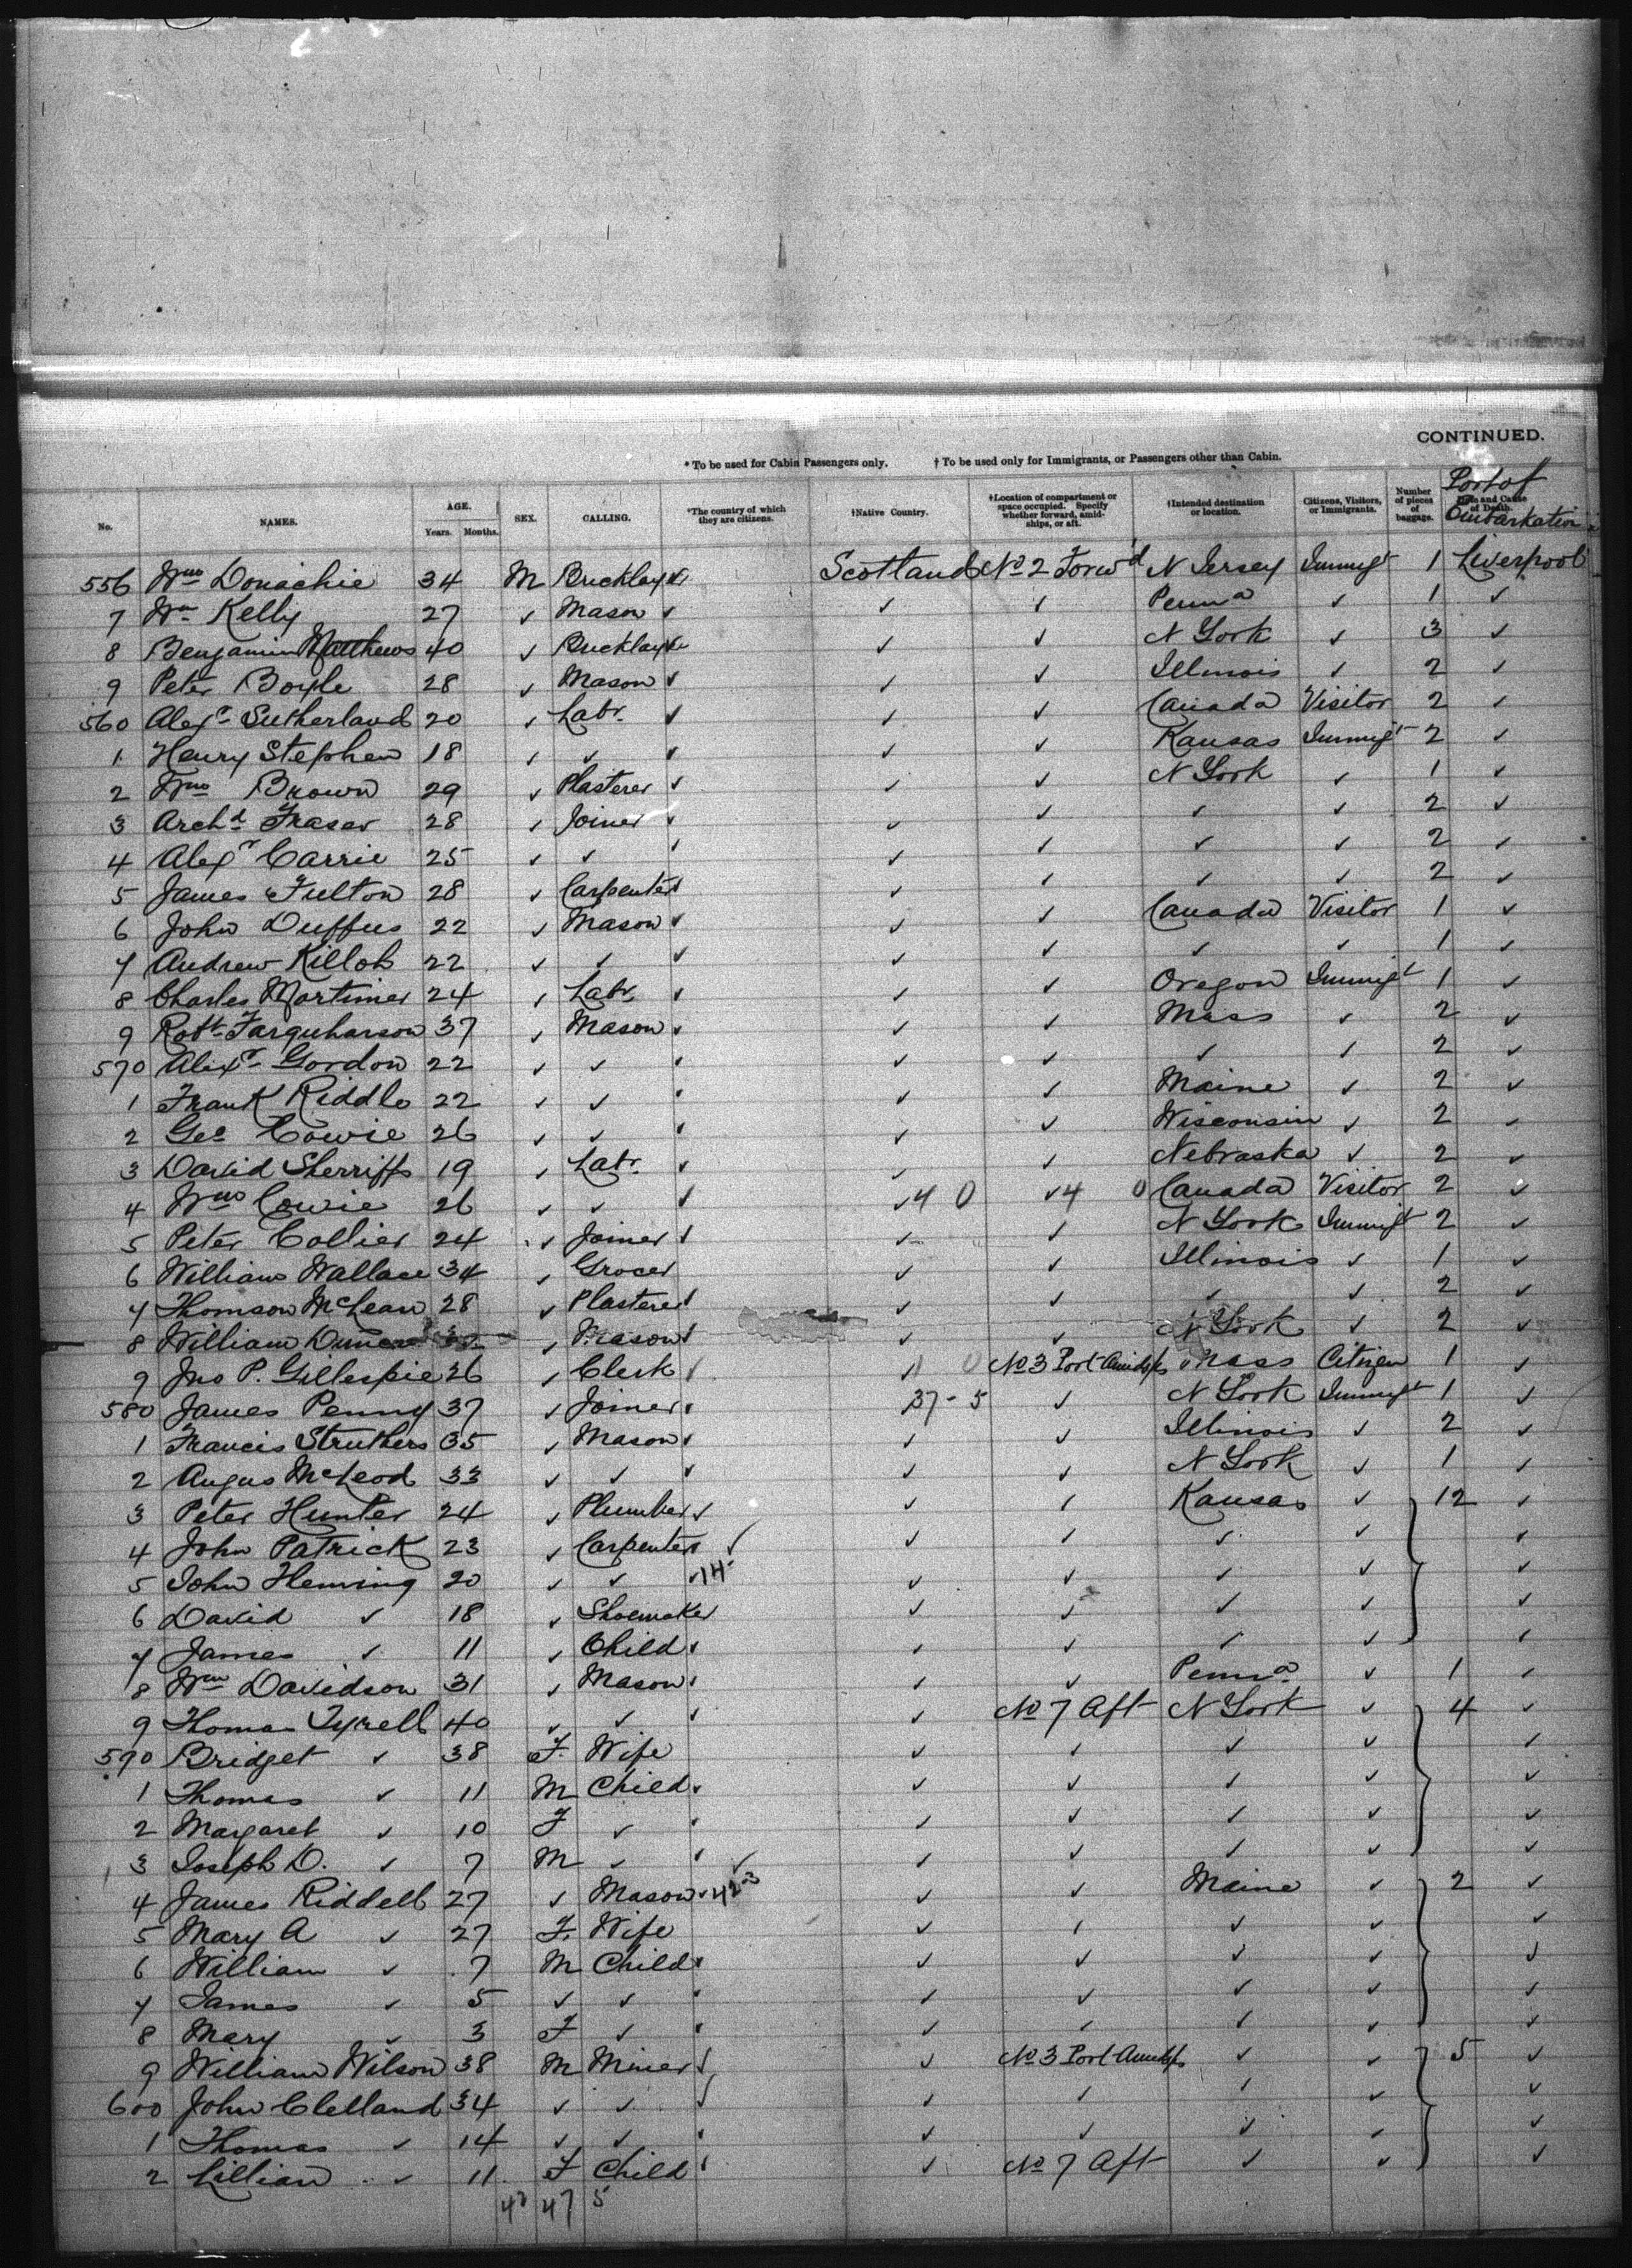 CONTINUED.
* To be used for Cabin Passengers only. † To be used only for Immigrants, or Passengers other than Cabin.
No. NAMES. AGE. Years. Months. SEX. CALLING. *The country of which they are citizens. †Native Country. †Location of compartment or space occupied. Specify whether forward, amidships, or aft. †Intended destination or location. Citizens, Visitors, or Immigrants. Number of pieces of baggage. Port of Embarkation
556 Wm Donachie 34 M Bricklayr ✓ Scotland No 2 Forwd N Jersey Immigt 1 Liverpool
7 Wm Kelly 27 ✓ Mason ✓ ✓ ✓ Penna ✓ 1 ✓
8 Benjamin Matthews 40 ✓ Bricklayr ✓ ✓ N York ✓ 3 ✓
9 Peter Boyle 28 ✓ Mason ✓ ✓ ✓ Illinois ✓ 2 ✓
560 Alexr Sutherland 20 ✓ Labr ✓ ✓ ✓ Canada Visitor 2 ✓
1 Henry Stephen 18 ✓ ✓ ✓ ✓ ✓ Kansas Immigt 2 ✓
2 Wm Brown 29 ✓ Plasterer ✓ ✓ ✓ N York ✓ 1 ✓
3 Archd Fraser 28 ✓ Joiner ✓ ✓ ✓ ✓ ✓ 2 ✓
4 Alexr Carrie 25 ✓ ✓ ✓ ✓ ✓ ✓ ✓ 2 ✓
5 James Fulton 28 ✓ Carpenter ✓ ✓ ✓ ✓ ✓ 2 ✓
6 John Duffus 22 ✓ Mason ✓ ✓ ✓ Canada Visitor 1 ✓
7 Andrew Killoh 22 ✓ ✓ ✓ ✓ ✓ ✓ ✓ 1 ✓
8 Charles Mortimer 24 ✓ Labr ✓ ✓ ✓ Oregon Immigt 1 ✓
9 Robt Farquharson 37 ✓ Mason ✓ ✓ ✓ Mass ✓ 2 ✓
570 Alexr Gordon 22 ✓ ✓ ✓ ✓ ✓ ✓ ✓ 2 ✓
1 Frank Riddle 22 ✓ ✓ ✓ ✓ ✓ Maine ✓ 2 ✓
2 Geo Cowie 26 ✓ ✓ ✓ ✓ ✓ Wisconsin ✓ 2 ✓
3 David Sherriffs 19 ✓ Labr ✓ ✓ ✓ Nebraska ✓ 2 ✓
4 Wm Cowie 26 ✓ ✓ ✓ ✓ 4 0 ✓ 4 0 Canada Visitor 2 ✓
5 Peter Collier 24 ✓ Joiner ✓ ✓ ✓ N York Immigt 2 ✓
6 William Wallace 34 ✓ Grocer ✓ ✓ Illinois ✓ 1 ✓
7 Thomson McLean 28 ✓ Plasterer ✓ ✓ ✓ ✓ ✓ 2 ✓
8 William ✓ Mason ✓ ✓ ✓ N York ✓ 2 ✓
9 Jno P. Gillespie 26 ✓ Clerk ✓ No 3 Port Amidsps Mass Citizen 1 ✓
580 James Penny 37 ✓ Joiner ✓ 37 - 5 ✓ N York Immigt 1 ✓
1 Francis Struthers 35 ✓ Mason ✓ ✓ ✓ Illinois ✓ 2 ✓
2 Angus McLeod 33 ✓ ✓ ✓ ✓ ✓ N York ✓ 1 ✓
3 Peter Hunter 24 ✓ Plumber ✓ ✓ ✓ Kansas ✓ 12 ✓
4 John Patrick 23 ✓ Carpenter ✓ ✓ ✓ ✓ ✓ ✓ ✓
5 John Heming 20 ✓ ✓ ✓ 14 ✓ ✓ ✓ ✓ ✓
6 David ✓ 18 ✓ Shoemaker ✓ ✓ ✓ ✓ ✓
7 James ✓ 11 ✓ Child ✓ ✓ ✓ ✓ ✓ ✓
8 Wm Davidson 31 ✓ Mason ✓ ✓ ✓ Penna ✓ 1 ✓
9 Thomas Tyrell 40 ✓ ✓ ✓ ✓ No 7 Aft N York ✓ 4 ✓
590 Bridget ✓ 38 F. Wife ✓ ✓ ✓ ✓ ✓
1 Thomas ✓ 11 M Child ✓ ✓ ✓ ✓ ✓ ✓
2 Margaret ✓ 10 F ✓ ✓ ✓ ✓ ✓ ✓ ✓
3 Joseph D. ✓ 7 M ✓ ✓ ✓ ✓ ✓ ✓ ✓ ✓
4 James Riddell 27 ✓ Mason ✓ 42-3 ✓ ✓ Maine ✓ 2 ✓
5 Mary A ✓ 27 F. Wife ✓ ✓ ✓ ✓ ✓
6 William ✓ 7 M Child ✓ ✓ ✓ ✓ ✓ ✓
7 James ✓ 5 ✓ ✓ ✓ ✓ ✓ ✓ ✓ ✓
8 Mary ✓ 3 F ✓ ✓ ✓ ✓ ✓ ✓ ✓
9 William Wilson 38 M Miner ✓ ✓ No 3 Port Amidsps ✓ ✓ 5 ✓
600 John Clelland 34 ✓ ✓ ✓ ✓ ✓ ✓ ✓ ✓
1 Thomas ✓ 14 ✓ ✓ ✓ ✓ ✓ ✓ ✓ ✓
2 Lillian ✓ 11 F Child ✓ ✓ No 7 Aft ✓ ✓ ✓
42 47 5